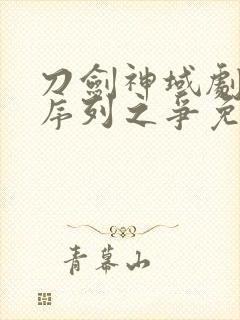 刀劍神域劇
序列之爭免
青幕山